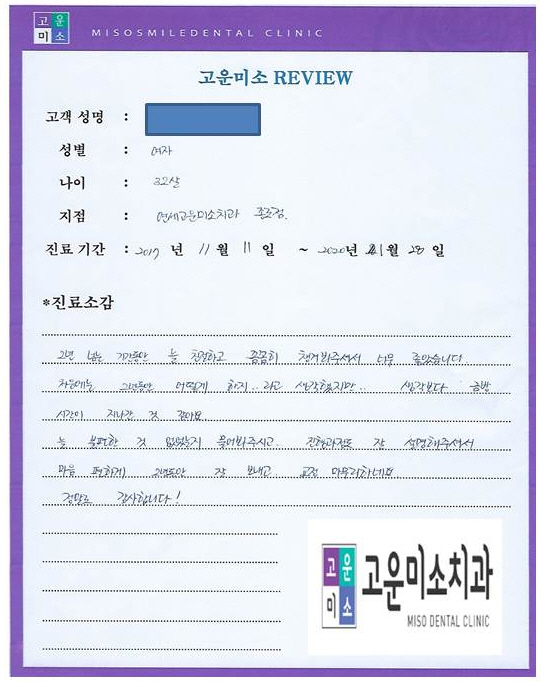 고운
미소
MISOSMILEDENTAL CLINIC
고운미소 REVIEW
고객 성명 :
성별 : 여자
나이 : 32살
지점 : 연세고운미소치과 종로점.
진료 기간 : 2017 년 11 월 11 일 ~ 2020년 월 28 일
*진료소감
2년 넘는 기간동안 늘 친절하고 꼼꼼히 챙겨봐주셔서 너무 좋았습니다.
처음에는 2년동안 어떻게 하지.. 라고 생각했지만.. 생각보다 금방
시간이 지나간 것 같아요
늘 불편한 것 없었는지 물어봐주시고.. 진행과정도 잘 설명해주셔서
마음 편하게 2년동안 잘 보내고.. 교정 마무리하네요
정말로 감사합니다!
고운
미소
고운미소치과
MISO DENTAL CLINIC